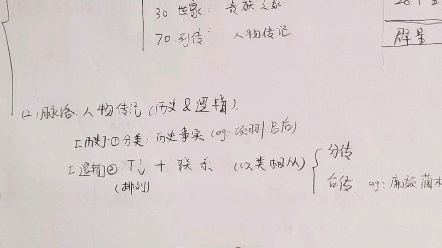 30 世家：贵族之家
70 列传：人物传记
(2) 脉络 人物传记 (历史 & 逻辑)
I 历史 ① 分类：历史事实 (eg: 项羽 吕后)
I 逻辑 ② T↓ + 联系 (以类相从) 分传
(排列) 合传 eg: 廉颇 蔺